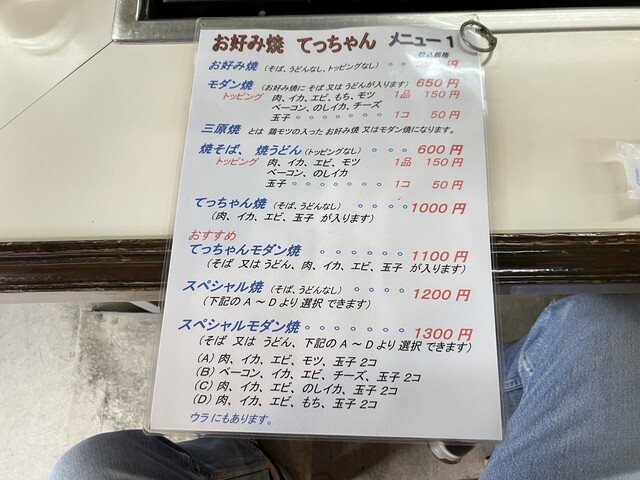 お好み焼 てっちゃん メニュー1
税込価格
お好み焼 (そば、うどんなし、トッピングなし) ・・ 円
モダン焼 (お好み焼に そば 又は うどんが入ります) 650 円
トッピング 肉、イカ、エビ、もち、モツ 1品 150 円
ベーコン、のしイカ、チーズ
玉子 ・・・・・・・ 1コ 50 円
三原焼 とは 鶏モツの入った お好み焼 又はモダン焼になります。
焼そば、 焼うどん (トッピングなし) ・・・ 600 円
トッピング 肉、イカ、エビ、モツ 1品 150 円
ベーコン、のしイカ
玉子 ・・・・・・・ 1コ 50 円
てっちゃん焼 (そば、うどんなし) ・・・・1000 円
(肉、イカ、エビ、玉子 が入ります)
おすすめ
てっちゃんモダン焼 ・・・・・・ 1100 円
(そば 又は うどん、肉、イカ、エビ、玉子 が入ります)
スペシャル焼 (そば、うどんなし) ・・・・ 1200 円
(下記の A ～ D より 選択 できます)
スペシャルモダン焼・・・・・・・ 1300 円
(そば 又 は うどん、下記の A ～ D より 選択 できます)
(A) 肉、イカ、エビ、モツ、玉子 2コ
(B) ベーコン、イカ、エビ、チーズ、玉子 2コ
(C) 肉、イカ、エビ、のしイカ、玉子 2コ
(D) 肉、イカ、エビ、もち、玉子 2コ
ウラ にもあります。